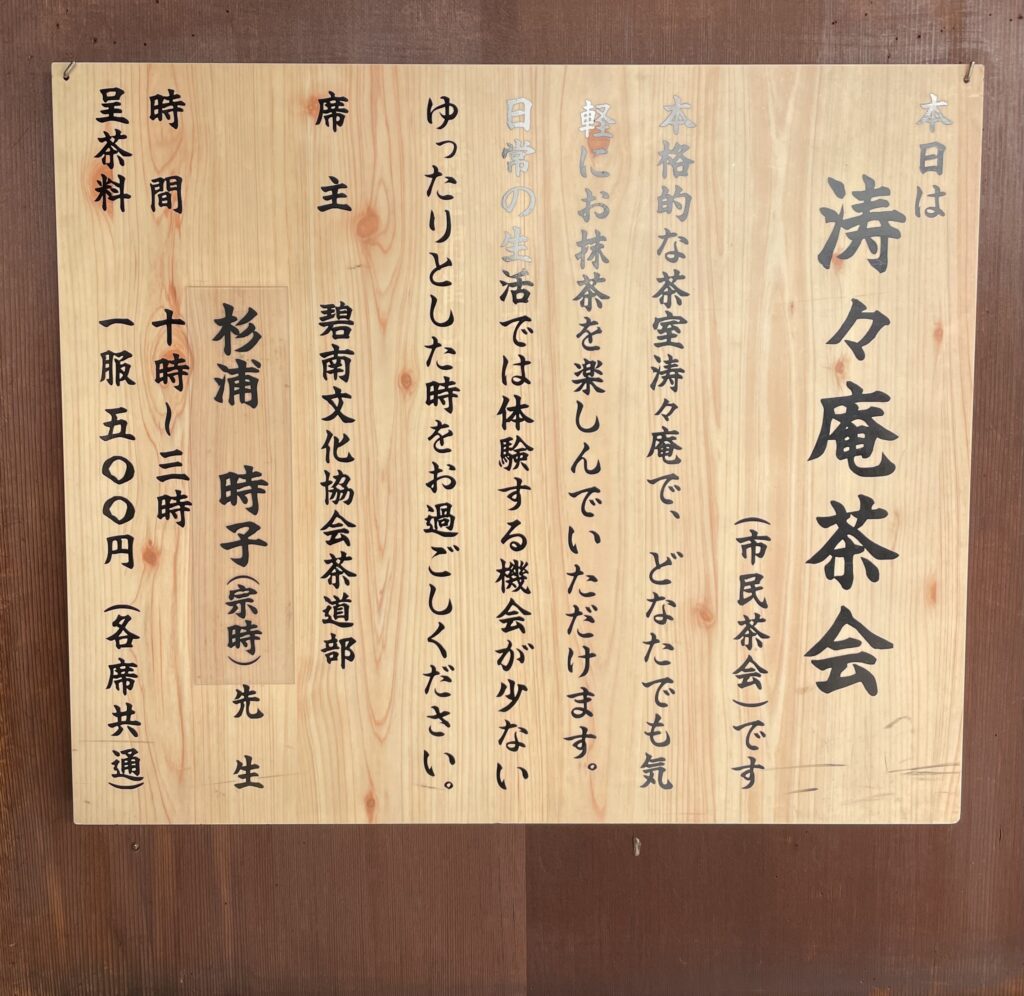 本日は
涛々庵茶会
(市民茶会)です
本格的な茶室涛々庵で、どなたでも気
軽にお抹茶を楽しんでいただけます。
日常の生活では体験する機会が少ない
ゆったりとした時をお過ごしください。
席主 碧南文化協会茶道部
杉浦 時子(宗時)先生
時間 十時〜三時
呈茶料 一服 五〇〇円 (各席共通)